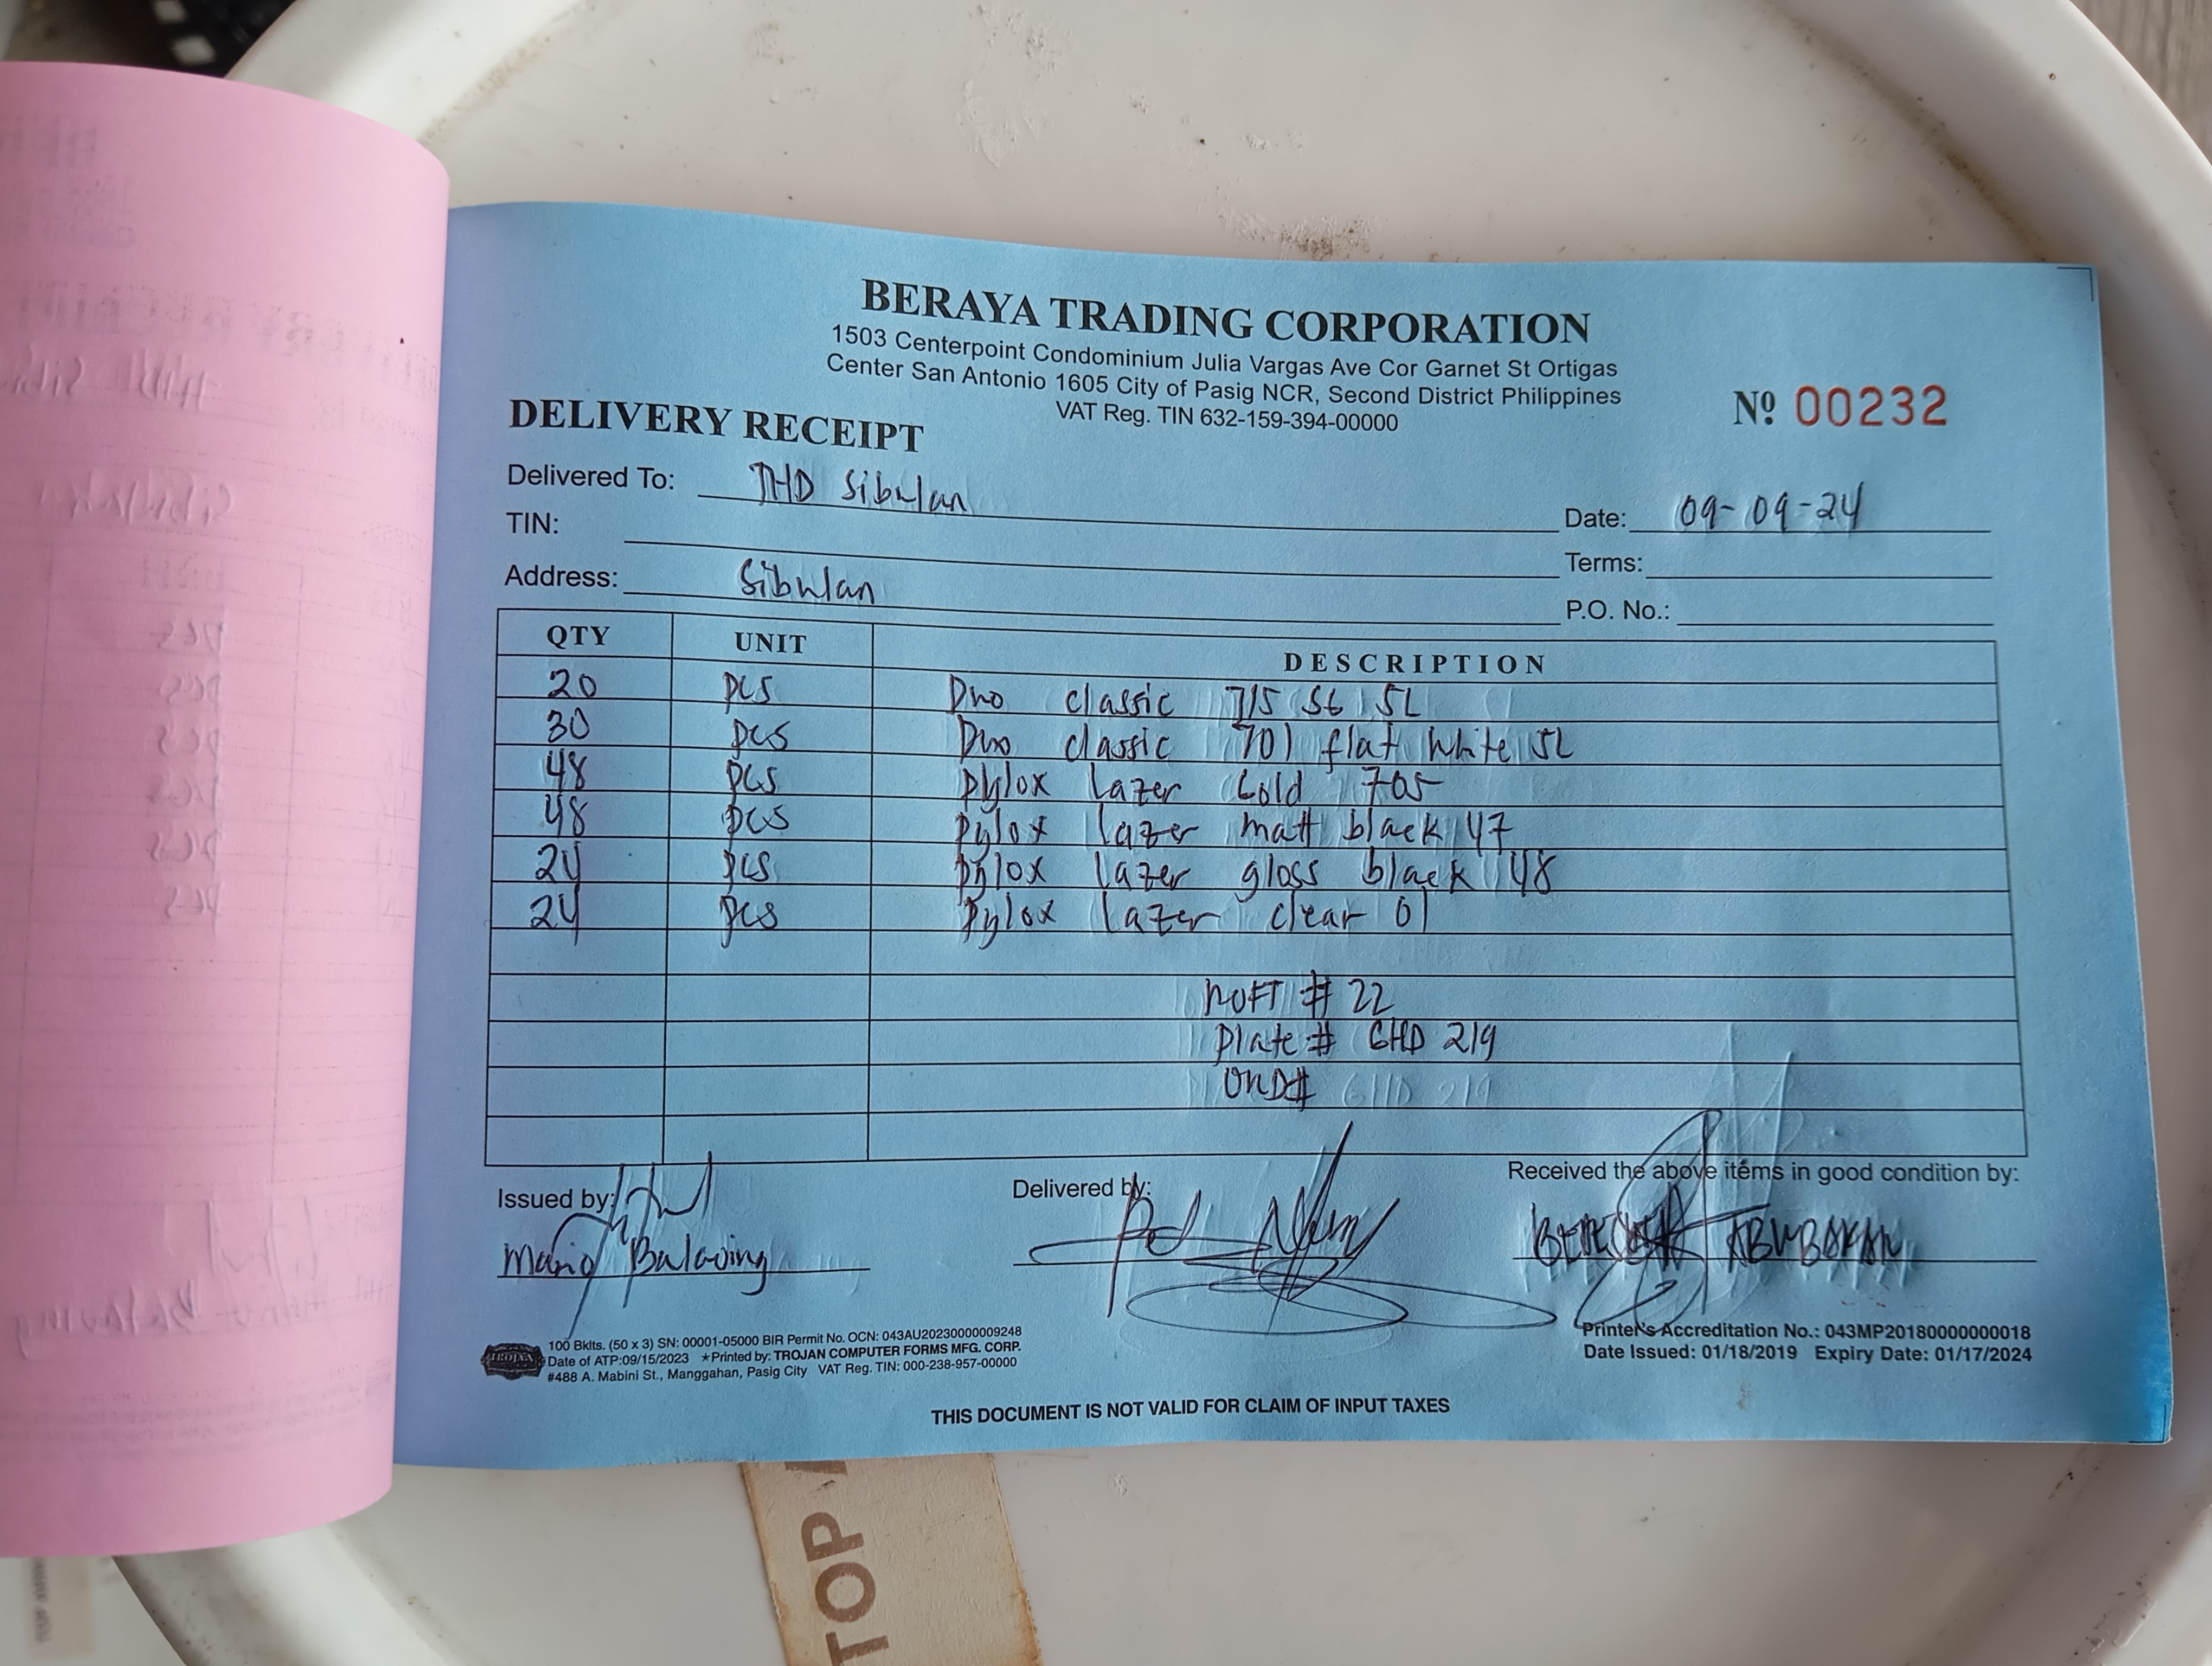 BERAYA TRADING CORPORATION
1503 Centerpoint Condominium Julia Vargas Ave Cor Garnet St Ortigas
Center San Antonio 1605 City of Pasig NCR, Second District Philippines
VAT Reg. TIN 632-159-394-00000
Nº 00232
DELIVERY RECEIPT
Delivered To: THD Sibulan
Date: 09-09-24
TIN:
Terms:
Address: Sibulan
P.O. No.:
QTY UNIT DESCRIPTION
20 pcs Duo classic 715 SG 5L
30 pcs Duo classic 701 flat white 5L
48 pcs pylox lazer Gold 705
48 pcs pylox lazer matt black 47
24 pcs pylox lazer gloss black 48
24 pcs pylox lazer clear 01
# 22
Plate # GHD 219
Issued by:
Delivered by:
Received the above items in good condition by:
Mario Balaoing
100 Bklts. (50 x 3) SN: 00001-05000 BIR Permit No. OCN: 043AU20230000009248
TROJAN
Date of ATP:09/15/2023 ★Printed by: TROJAN COMPUTER FORMS MFG. CORP.
#488 A. Mabini St., Manggahan, Pasig City VAT Reg. TIN: 000-238-957-00000
Printer's Accreditation No.: 043MP20180000000018
Date Issued: 01/18/2019 Expiry Date: 01/17/2024
THIS DOCUMENT IS NOT VALID FOR CLAIM OF INPUT TAXES
TOP